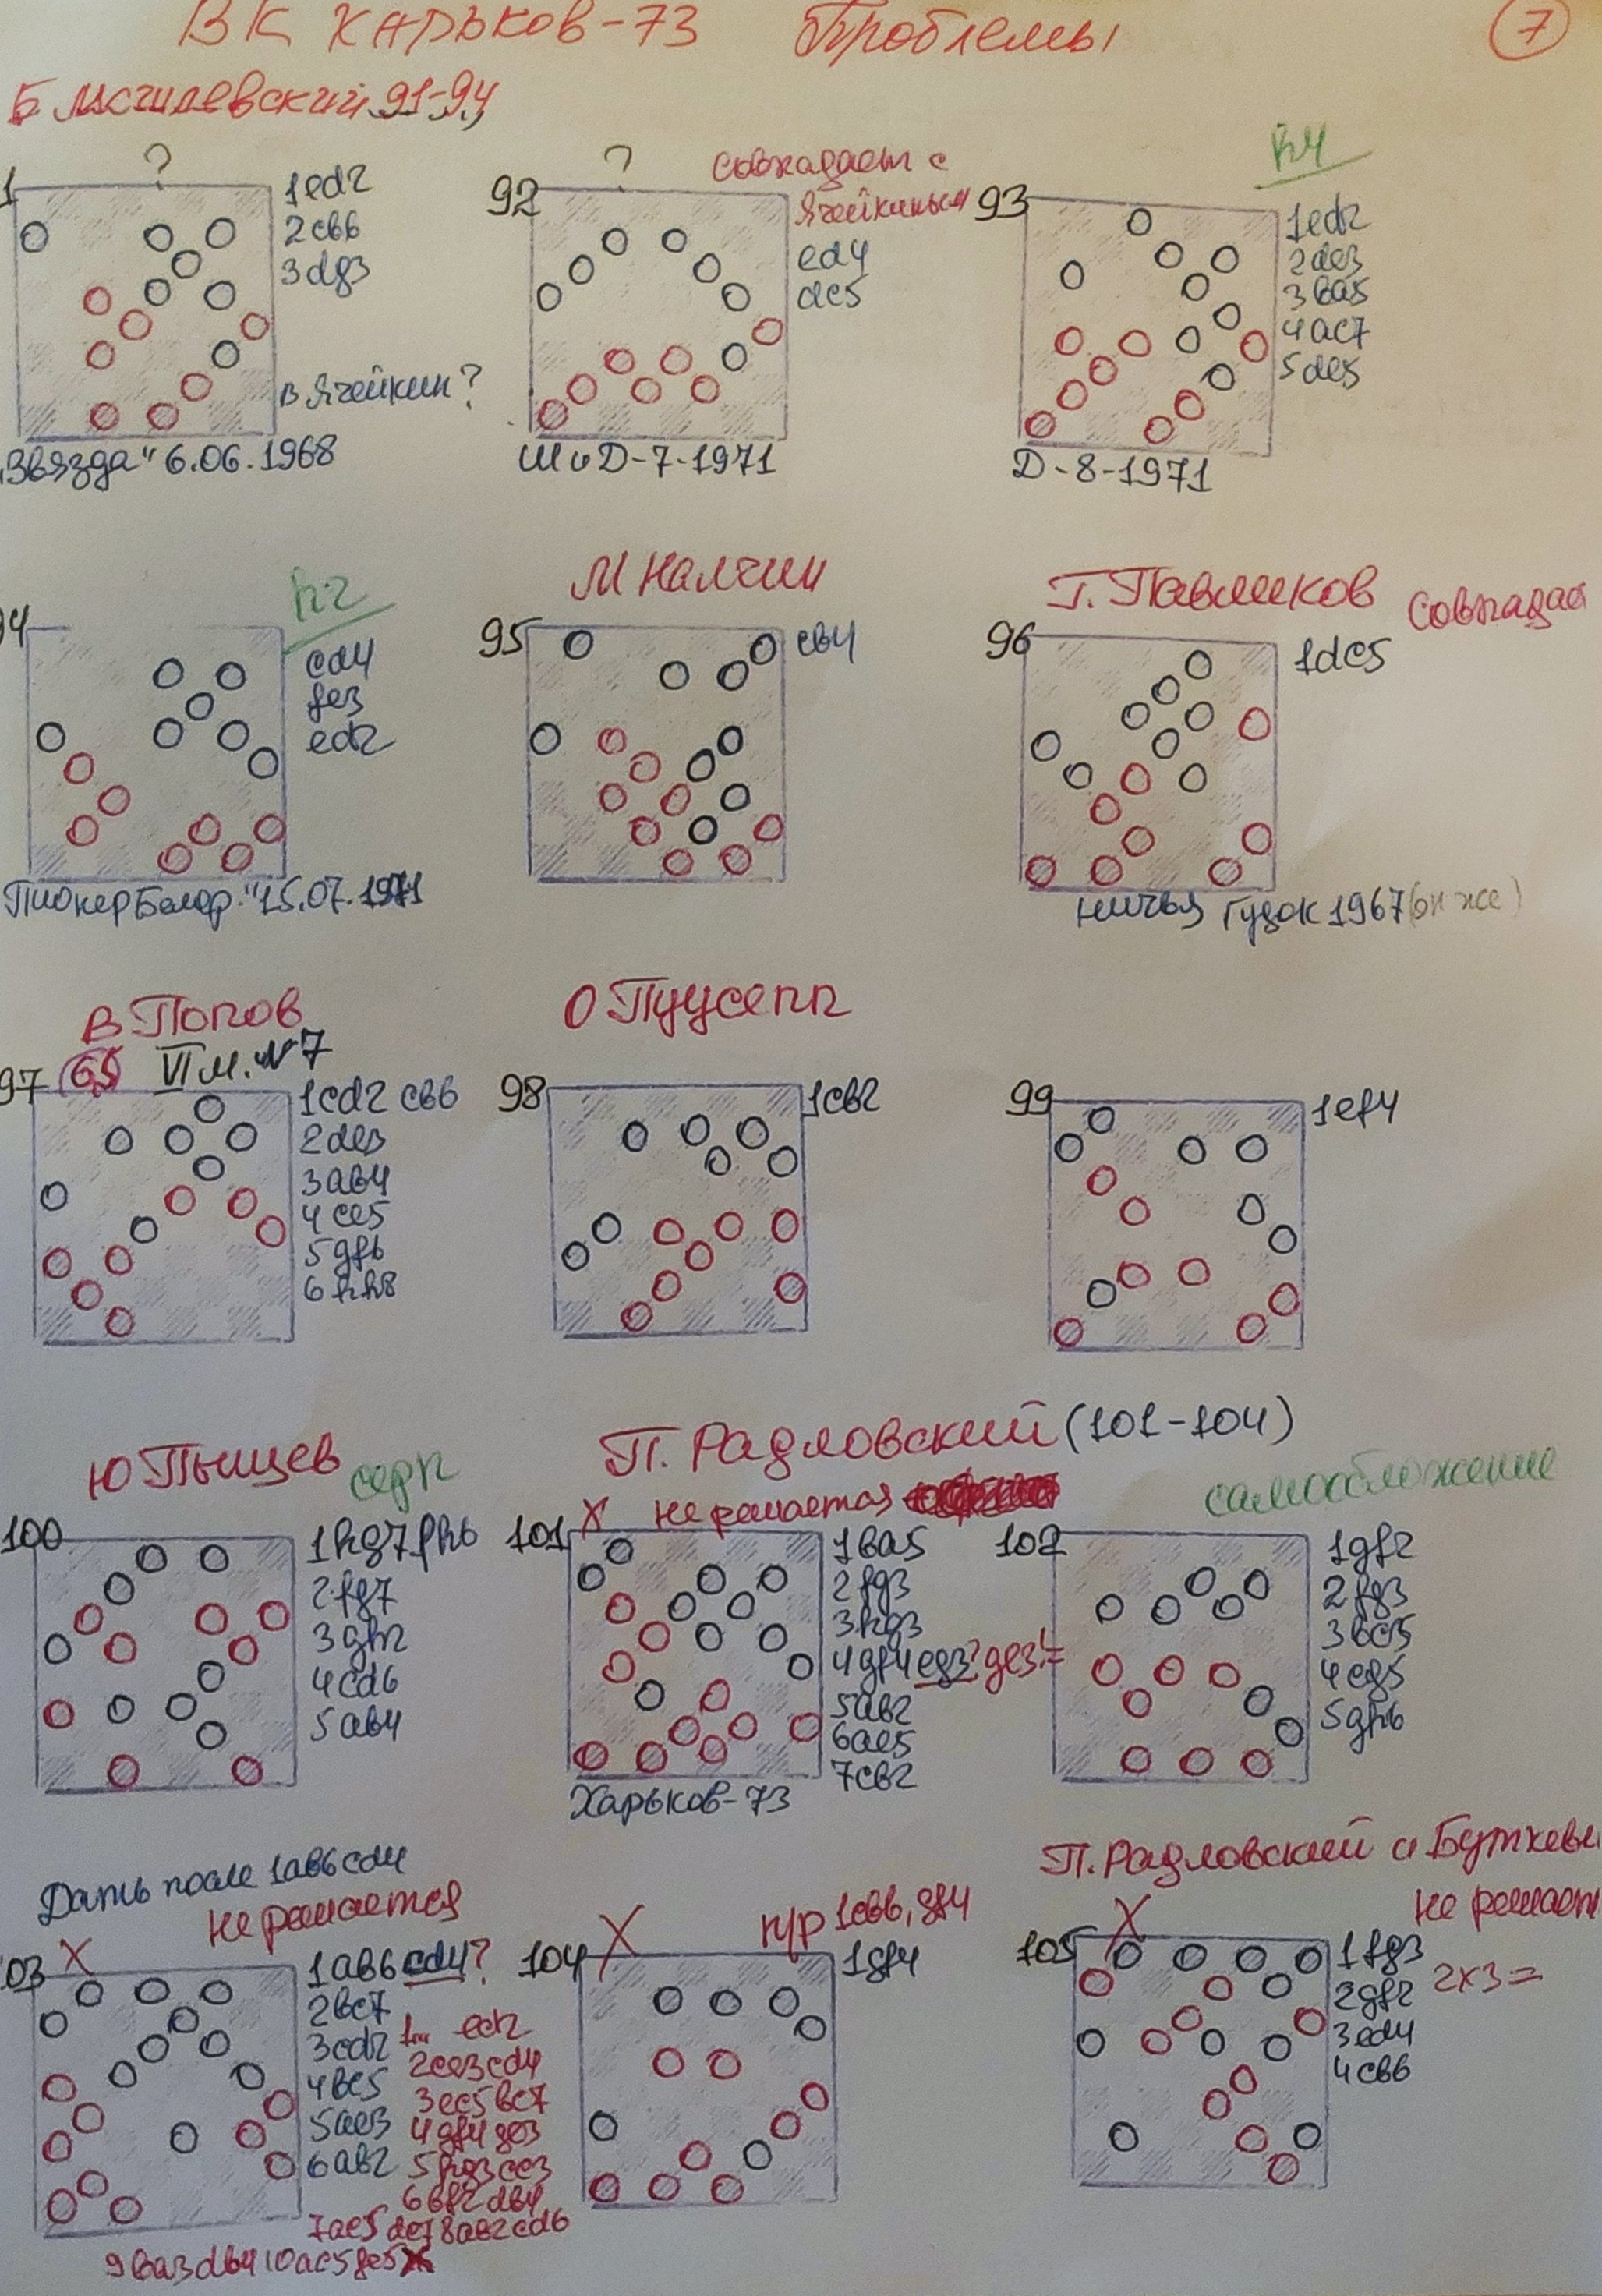 ВК ХАРЬКОВ-73 Проблемы 7
Б Могилевский 91-94
1 ? 1ed2
2cb6
3dg3
В Ячейкин?
"Звязда" 6.06.1968
92 ? совпадает с
Ячейкиным
ed4
dc5
ШиД-7-1971
93 h4
1ed2
2de3
3ba5
4ac7
5de5
Д-8-1971
94 h2
cd4
fe3
ed2
"Пионер Белор." 15.07.1971
М Налчин
95 cb4
Г. Павликов совпадает
96 1dc5
ничья Гудок 1967 (он же)
В Попов
97 65 VI м. №7
1cd2 cb6
2de3
3ab4
4ce5
5gf6
6hh8
О Пуусепп
98 1cb2
99 1ef4
Ю Пыщев серп
100 1hg7 fh6
2fg7
3gh2
4cd6
5ab4
П. Радловский (101-104)
101 X не решается
1ba5
2fg3
3hg3
4gf4 eg3? ge3!=
5ab2
6ae5
7cb2
Харьков-73
самообложение
102 1gf2
2fg3
3bc5
4eg5
5gh6
Дать после 1ab6 cd4
не решается
03 X 1ab6 cd4?
2bc7
3cd2
4bc5
5ae3
6ab2
1... ech2
2ce3 cd4
3ec5 bc7
4gf4 ge3
5hg3 ce3
6bf2 db4
7ae5 de7 8ab2 cd6
9ba3 db4 10ac5 ge5X
104 X н/р 1cb6, gf4
1gf4
П. Радловский и Буткеви
не решает
105 X 1fg3
2gf2
3ed4
4cb6
2x3=